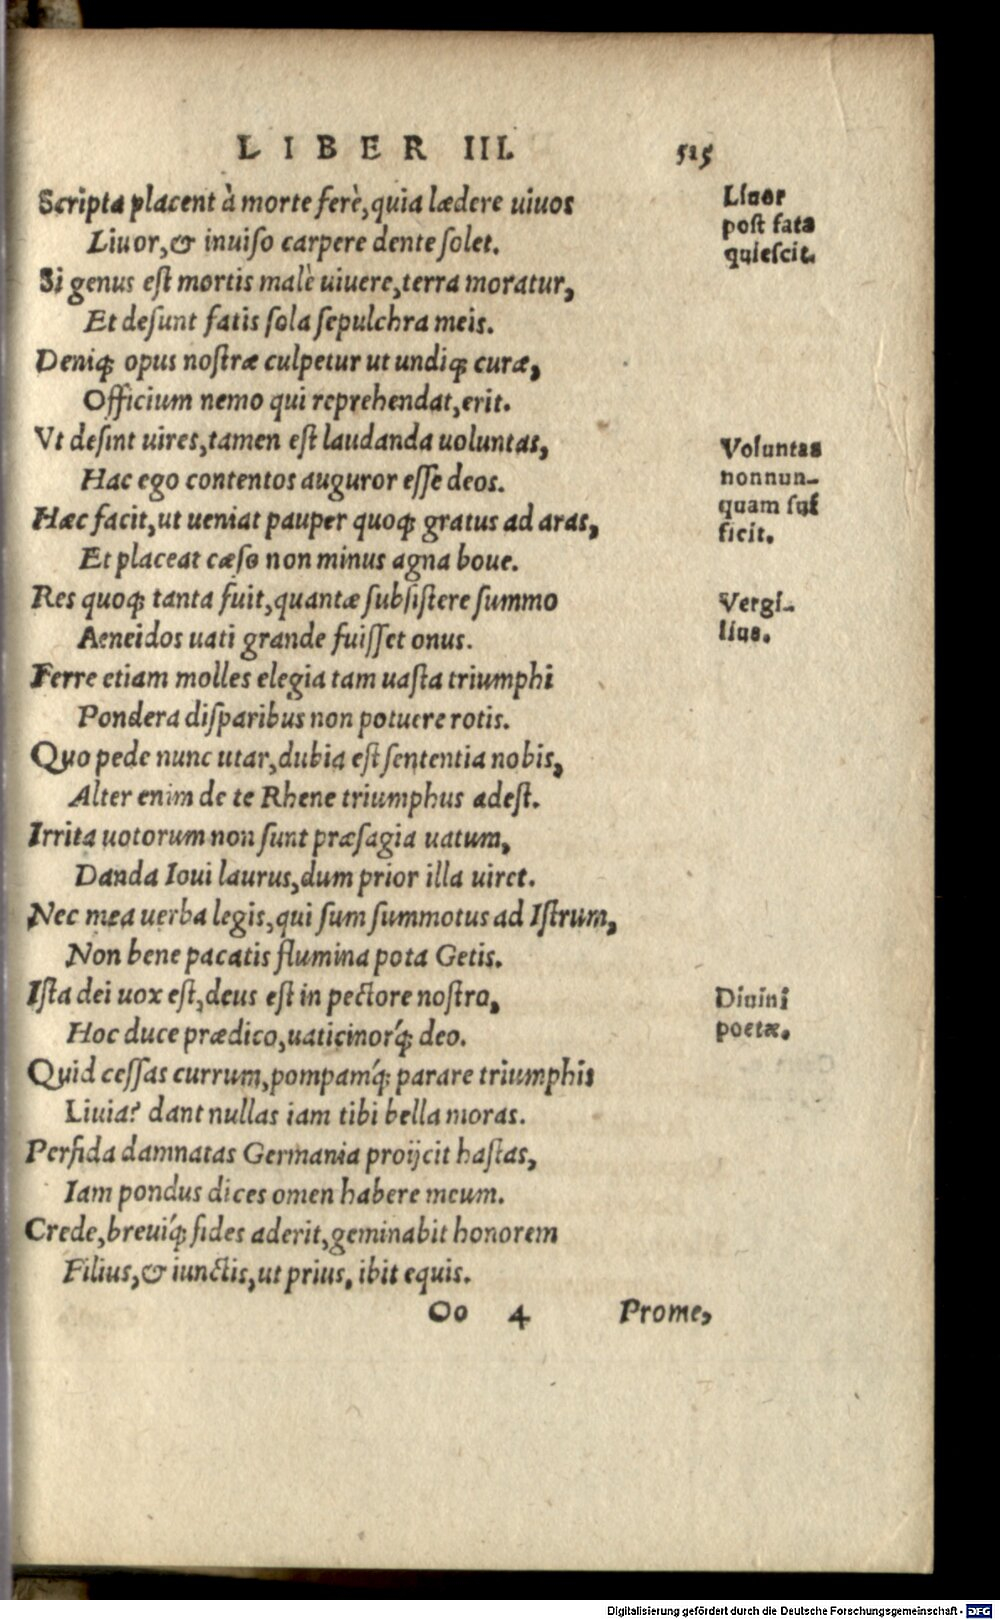 LIBER III.
515
Scripta placent à morte ferè, quia lædere uiuos
Liuor, & inuiso carpere dente solet.
Si genus est mortis malè uiuere, terra moratur,
Et desunt fatis sola sepulchra meis.
Deniq; opus nostræ culpetur ut undiq; curæ,
Officium nemo qui reprehendat, erit.
Vt desint uires, tamen est laudanda uoluntas,
Hac ego contentos auguror esse deos.
Hæc facit, ut ueniat pauper quoq; gratus ad aras,
Et placeat cæso non minus agna boue.
Res quoq; tanta fuit, quantæ subsistere summo
Aeneidos uati grande fuisset onus.
Ferre etiam molles elegia tam uasta triumphi
Pondera disparibus non potuere rotis.
Quo pede nunc utar, dubia est sententia nobis,
Alter enim de te Rhene triumphus adest.
Irrita uotorum non sunt præsagia uatum,
Danda Ioui laurus, dum prior illa uiret.
Nec mea uerba legis, qui sum summotus ad Istrum,
Non bene pacatis flumina pota Getis.
Ista dei uox est, deus est in pectore nostro,
Hoc duce prædico, uaticinorq́; deo.
Quid cessas currum, pompamq́; parare triumphis
Liuia? dant nullas iam tibi bella moras.
Perfida damnatas Germania proijcit hastas,
Iam pondus dices omen habere meum.
Crede, breuiq́; fides aderit, geminabit honorem
Filius, & iunctis, ut prius, ibit equis.
Oo 4
Prome,
Liuor
post fata
quiescit.
Voluntas
nonnun-
quam suf
ficit.
Vergi-
lius.
Diuini
poetæ.
Digitalisierung gefördert durch die Deutsche Forschungsgemeinschaft - DFG